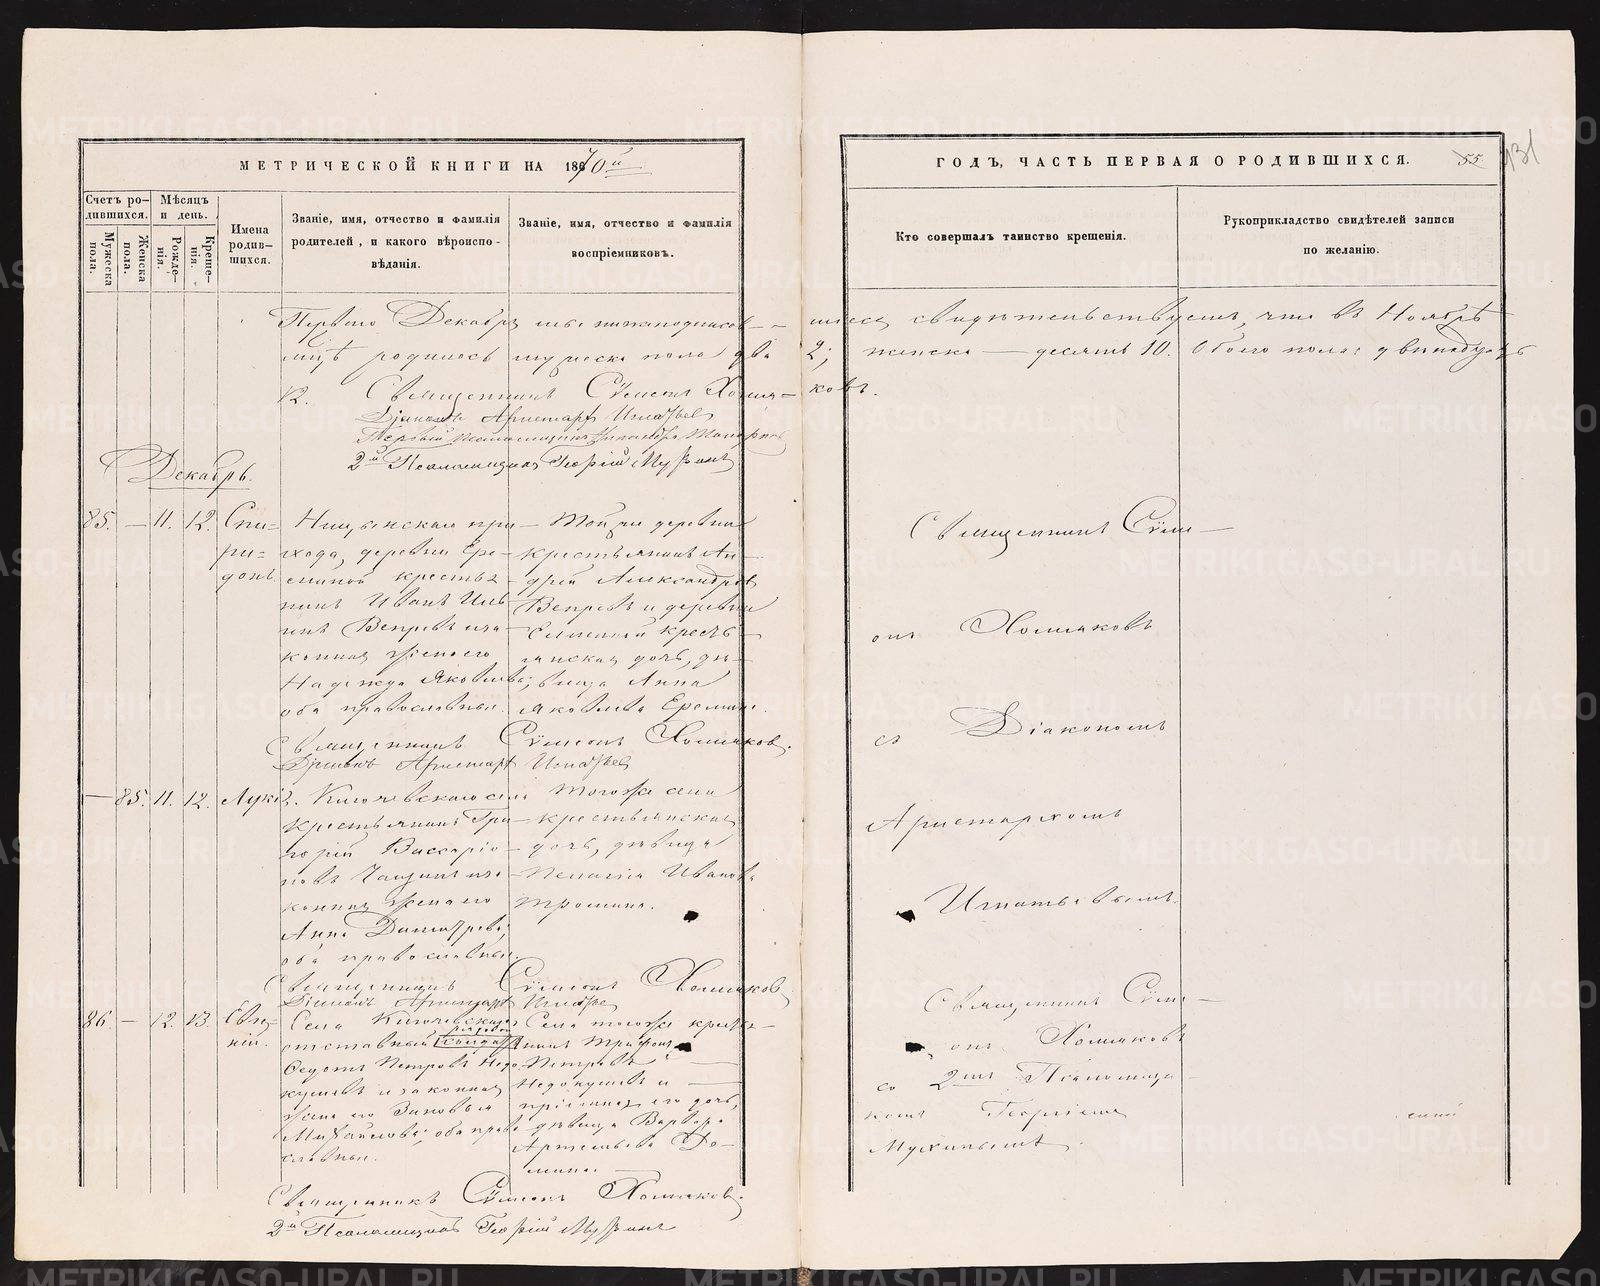 МЕТРИЧЕСКОЙ КНИГИ НА 1870й
ГОДЪ, ЧАСТЬ ПЕРВАЯ О РОДИВШИХСЯ.
55
131
Счетъ ро-
дившихся.
Мужеска
пола.
Женска
пола.
Мѣсяцъ
и день.
Рожде-
нія.
Креще-
нія.
Имена
родив-
шихся.
Званіе, имя, отчество и фамилія
родителей, и какого вѣроиспо-
вѣданія.
Званіе, имя, отчество и фамилія
воспріемниковъ.
Кто совершалъ таинство крещенія.
Рукоприкладство свидѣтелей записи
по желанію.
Перваго Декабря мы нижеподписав- шіеся свидѣтельствуемъ, что въ Ноябрѣ
родилось мужеска пола два 2; женска — десять 10. Обоего пола двѣнадцать
12. Священникъ Сѵмеонъ Холмя- ковъ.
Діаконъ Аристархъ Игнатьев
Первый псаломщикъ
2й Псаломщикъ Георгій Мухинъ
Декабрь.
85. — 11. 12.
Спи-
ри-
донъ
Ницынскаго при-
хода, деревни Ере-
миной крестья-
нинъ Иванъ Иль-
инъ Вепревъ и за-
конная жена его
Надежда Яковлева;
оба православные.
Той же деревни
крестьянинъ Ан-
дрей Александров
Вепревъ и деревни
кресть-
янская дочь, дѣ-
вица Анна
Яковлева Еремина.
Священникъ Сѵме-
онъ Холмяковъ
съ Діакономъ
Аристархомъ
Игнатьевымъ.
Священникъ Сѵмеонъ Холмяков.
Діаконъ Аристархъ Игнатьев
— 85. 11. 12.
Лукія.
Ключевскаго села
крестьянинъ Гри-
горій Виссаріо-
новъ и за-
конная жена его
Анна Димитріева;
оба православные.
Того же села
крестьянская
дочь, дѣвица
Пелагія Иванова
Трошина.
Священникъ Сѵмеонъ Холмяков
Діаконъ Аристархъ Игнатьев
86 — 12. 13.
Евге-
ній.
Села Ключевскаго
отставный рядовой
солдатъ
Федотъ Петровъ Недо-
кушевъ и законная
жена его Зиновья
Михайлова; оба право-
славные.
Села того же кресть-
янинъ Трифонъ
Петровъ —
Недокушевъ и —
пріемная его дочь,
дѣвица Варвара
Артемьева До-
мина.
Священникъ Сѵме-
онъ Холмяковъ
со 2мъ Псаломщи-
комъ Георгіемъ
Мухинымъ.
Священникъ Сѵмеонъ Холмяков.
2й Псаломщикъ Георгій Мухинъ
METRIKI.GASO-URAL.RU